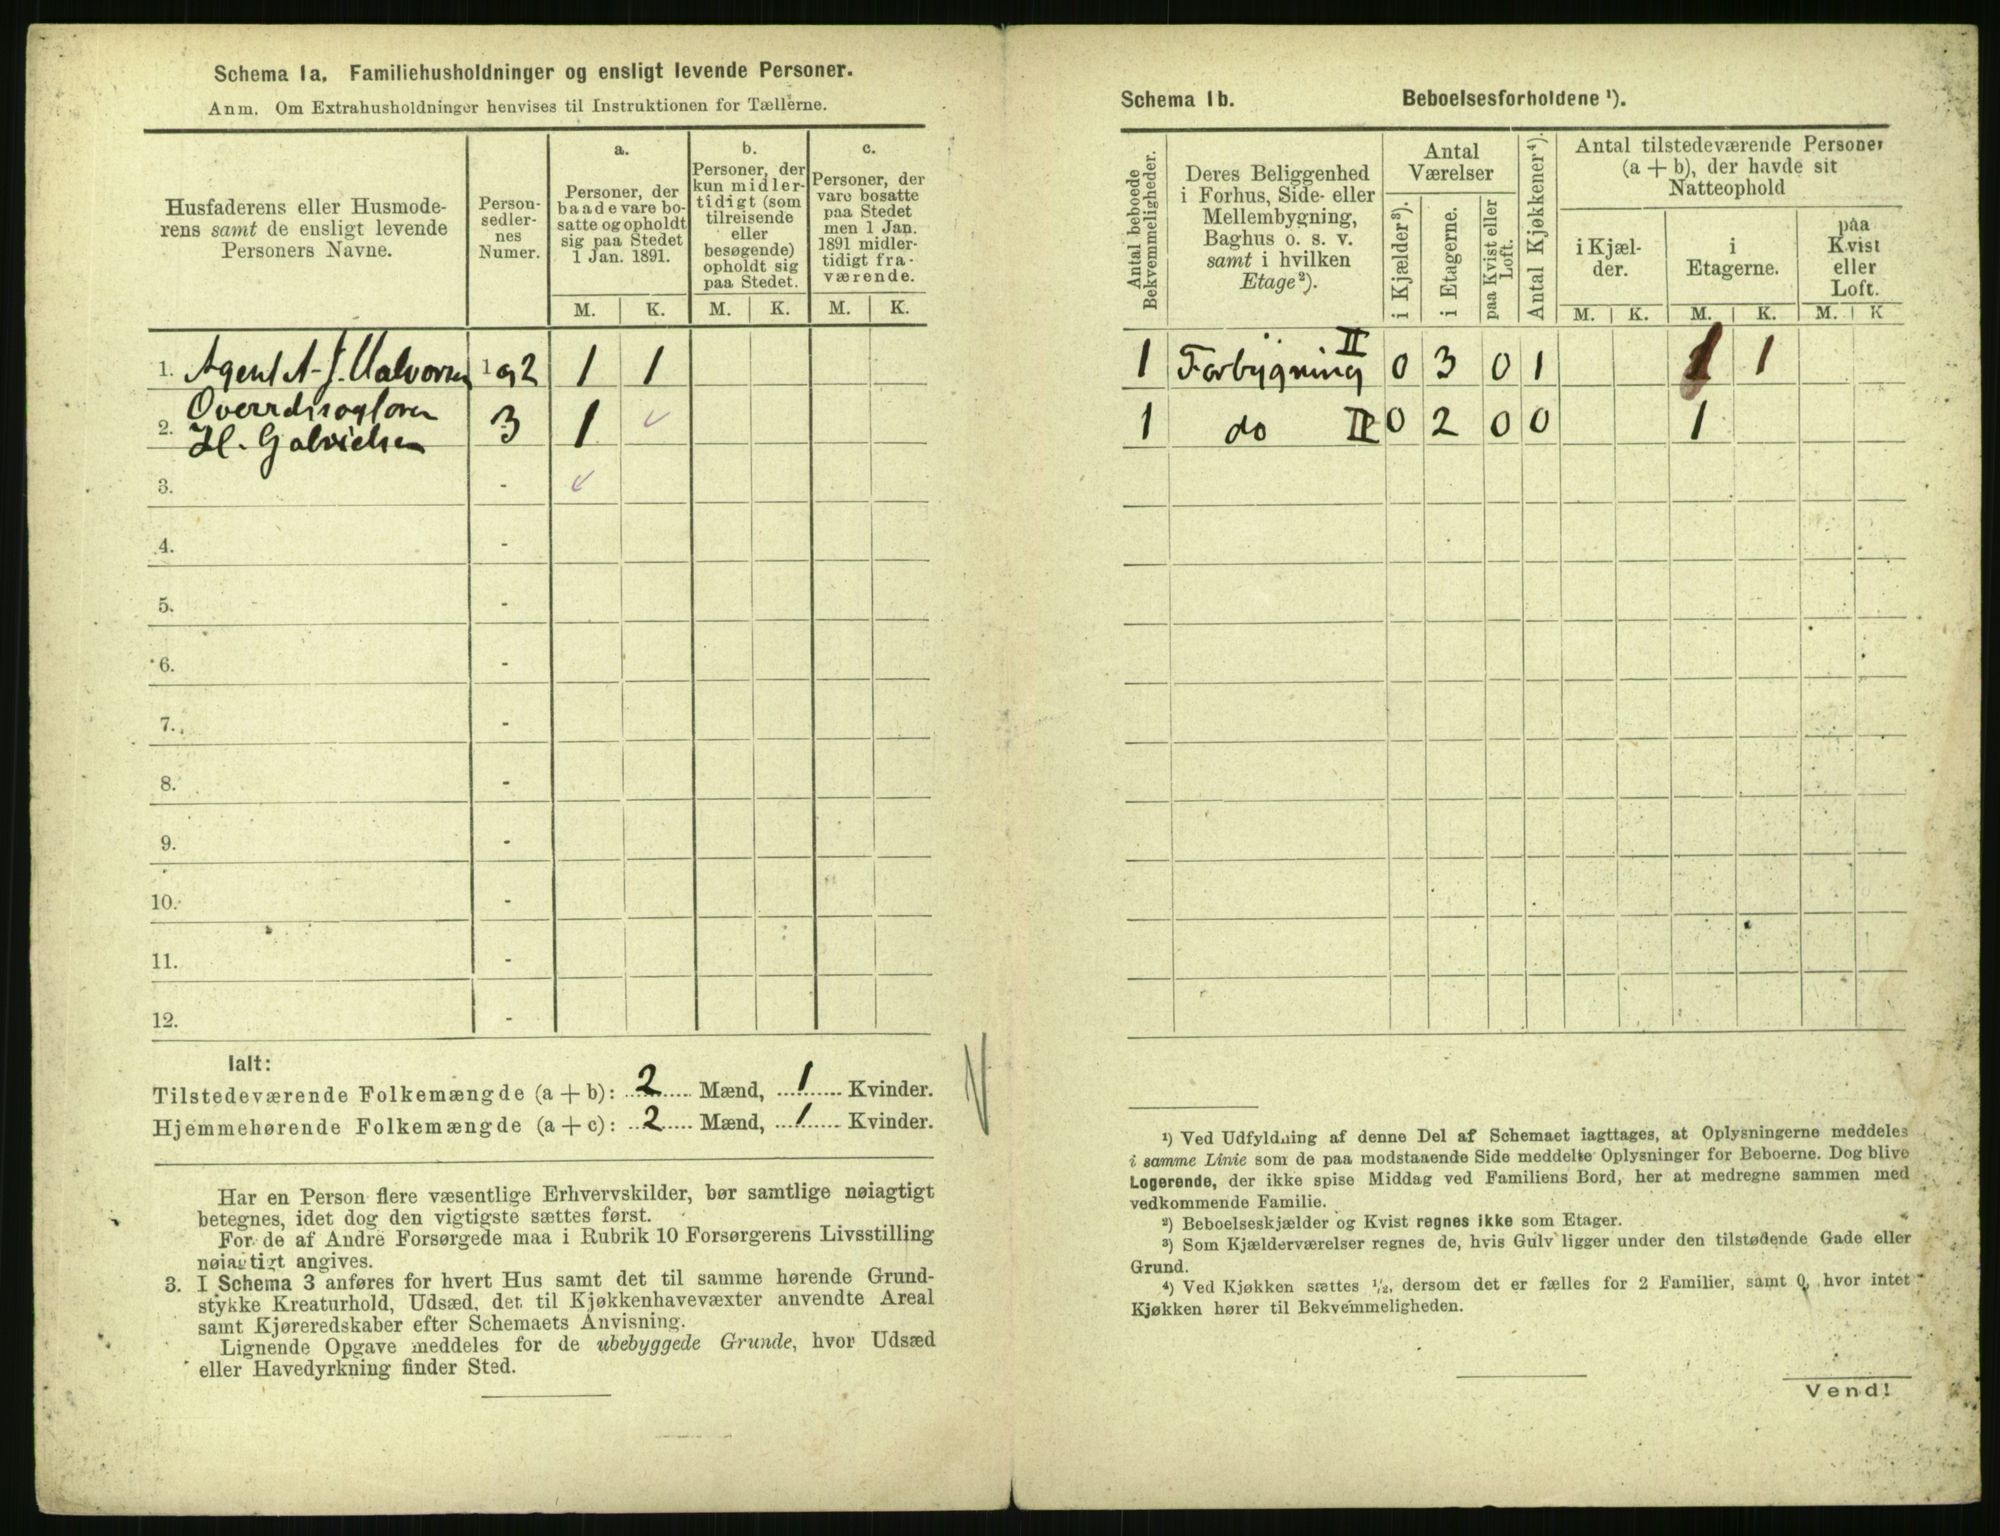 Schema 1a. Familiehusholdninger og ensligt levende Personer.
Anm. Om Extrahusholdninger henvises til Instruktionen for Tællerne.
Husfaderens eller Husmode-
rens samt de ensligt levende
Personers Navne.
Person-
sedler-
nes
Numer.
a.
Personer, der
baade vare bo-
satte og opholdt
sig paa Stedet
1 Jan. 1891.
b.
Personer, der
kun midler-
tidigt (som
tilreisende
eller
besøgende)
opholdt sig
paa Stedet.
c.
Personer, der
vare bosatte
paa Stedet
men 1 Jan.
1891 midler-
tidigt fra-
værende.
M. K. M. K. M. K.
1. Agent A. J. Halvorsen 1 og 2 1 1
2. H. Gabrielsen 3 1
3. -
4. -
5. -
6. -
7. -
8. -
9. -
10. -
11. -
12. -
Ialt:
Tilstedeværende Folkemængde (a + b): 2 Mænd, 1 Kvinder.
Hjemmehørende Folkemængde (a + c): 2 Mænd, 1 Kvinder.
Har en Person flere væsentlige Erhvervskilder, bør samtlige nøiagtigt
betegnes, idet dog den vigtigste sættes først.
For de af Andre Forsørgede maa i Rubrik 10 Forsørgerens Livsstilling
nøiagtigt angives.
3. I Schema 3 anføres for hvert Hus samt det til samme hørende Grund-
stykke Kreaturhold, Udsæd, det til Kjøkkenhavevæxter anvendte Areal
samt Kjøreredskaber efter Schemaets Anvisning.
Lignende Opgave meddeles for de ubebyggede Grunde, hvor Udsæd
eller Havedyrkning finder Sted.
Schema 1b. Beboelsesforholdene ¹).
Antal beboede
Bekvemmeligheder.
Deres Beliggenhed
i Forhus, Side- eller
Mellembygning,
Baghus o. s. v.
samt i hvilken
Etage²).
Antal
Værelser
i Kjælder³).
i Etagerne.
paa Kvist eller
Loft.
Antal Kjøkkener⁴).
Antal tilstedeværende Personer
(a + b), der havde sit
Natteophold
i Kjæl-
der.
i
Etagerne.
paa
Kvist
eller
Loft.
M. K. M. K. M. K
1 Forbygning II 0 3 0 1 1 1
1 do II 0 2 0 0 1
¹) Ved Udfyldning af denne Del af Schemaet iagttages, at Oplysningerne meddeles
i samme Linie som de paa modstaaende Side meddelte Oplysninger for Beboerne. Dog blive
Logerende, der ikke spise Middag ved Familiens Bord, her at medregne sammen med
vedkommende Familie.
²) Beboelseskjælder og Kvist regnes ikke som Etager.
³) Som Kjælderværelser regnes de, hvis Gulv ligger under den tilstødende Gade eller
Grund.
⁴) Ved Kjøkken sættes ½, dersom det er fælles for 2 Familier, samt 0, hvor intet
Kjøkken hører til Bekvemmeligheden.
Vend!